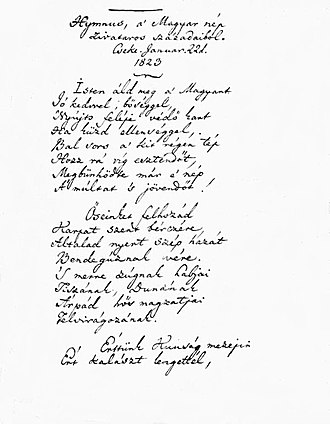 Hymnus, a' Magyar nép
zivataros századaiból.
Cseke. Januar. 22d.
1823
Isten áld meg a' Magyart
Jó kedvvel, bőséggel,
Nyújts feléje védő kart
Ha küzd ellenséggel,
Bal sors a' kit régen tép
Hozz rá víg esztendőt,
Megbűnhődte már e' nép
A' múltat 's jövendőt!
Őseinket felhozád
Kárpát szent bérczére,
Általad nyert szép hazát
Bendegúznak vére.
'S merre zúgnak habjai
Tiszának, Dunának
Árpád hős magzatjai
Felvirágozának.
Értünk Kunság mezejin
Ért kalászt lengettél,